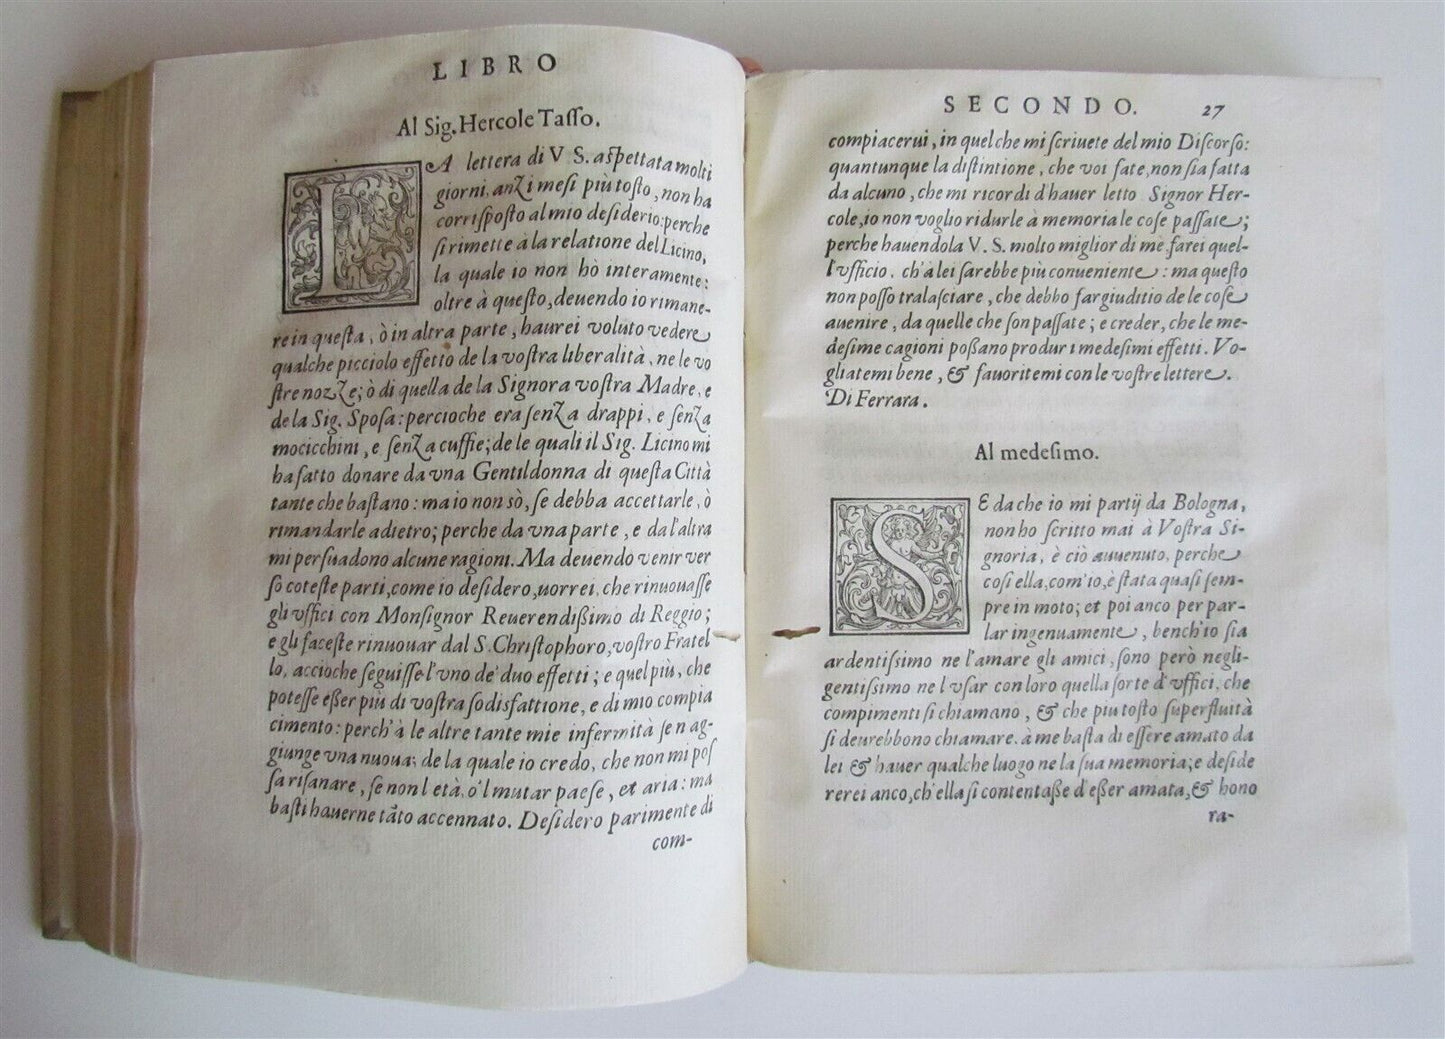 LIBRO
Al Sig. Hercole Taſſo.
LA lettera di V S. aſpettata molti
giorni, anzi meſi più toſto, non ha
corriſpoſto al mio deſiderio: perche
ſi rimette à la relatione del Licino,
la quale io non hò interamente:
oltre à queſto, deuendo io rimane-
re in queſta, ò in altra parte, haurei voluto vedere
qualche picciolo effetto de la voſtra liberalità, ne le vo
ſtre nozze; ò di quella de la Signora voſtra Madre, e
de la Sig. Spoſa: percioche era ſenza drappi, e ſenza
mocicchini, e ſenza cuffie; de le quali il Sig. Licino mi
ha fatto donare da vna Gentildonna di queſta Città
tante che baſtano: ma io non sò, ſe debba accettarle, ò
rimandarle adietro; perche da vna parte, e da l'altra
mi perſuadono alcune ragioni. Ma deuendo venir ver
ſo coteſte parti, come io deſidero, uorrei, che rinuouaſſe
gli vffici con Monſignor Reuerendiſſimo di Reggio;
e gli faceſte rinuouar dal S. Chriſtophoro, voſtro Fratel
lo, accioche ſeguiſſe l'uno de' duo effetti; e quel più, che
poteſſe eſſer più di voſtra ſodisfattione, e di mio compia
cimento: perch'à le altre tante mie infermità ſe n ag-
giunge vna nuoua; de la quale io credo, che non mi poſ
ſa riſanare, ſe non l età, o'l mutar paeſe, et aria: ma
baſti hauerne tãto accennato. Deſidero parimente di
com-
SECONDO. 27
compiacerui, in quel che mi ſcriuete del mio Diſcorſo:
quantunque la diſtintione, che voi fate, non ſia fatta
da alcuno, che mi ricordi d'hauer letto Signor Her-
cole, io non voglio ridurle à memoria le coſe paſſate;
perche hauendola V. S. molto miglior di me farei quel-
l'vfficio, ch'à lei ſarebbe più conueniente: ma queſto
non poſſo tralaſciare, che debbo far giuditio de le coſe
auenire, da quelle che ſon paſſate; e creder, che le me-
deſime cagioni poſſano produr i medeſimi effetti. Vo-
gliatemi bene, & fauoritemi con le voſtre lettere.
Di Ferrara.
Al medeſimo.
SE da che io mi partij da Bologna,
non ho ſcritto mai à Voſtra Si-
gnoria, è ciò auuenuto, perche
coſi ella, com'io, è ſtata quaſi ſem-
pre in moto; et poi anco per par-
lar ingenuamente, bench'io ſia
ardentiſſimo ne l'amare gli amici, ſono però negli-
gentiſſimo ne l'vſar con loro quella ſorte d'vffici, che
compimenti ſi chiamano, & che piu toſto ſuperfluità
ſi deurebbono chiamare. à me baſta di eſſere amato da
lei & hauer qualche luogo ne la ſua memoria; e deſide
rerei anco, ch'ella ſi contentaſſe d'eſſer amata, & hono
ra-